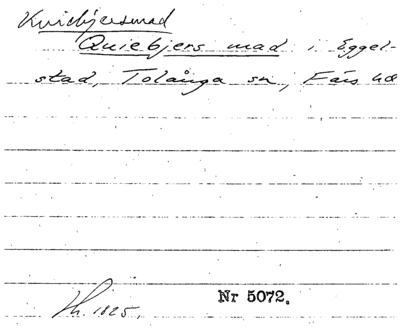 Kviebjersmad
Quiebjers mad i Äggel-
stad, Tolånga sn, Färs hd
1825.
Nr 5072.